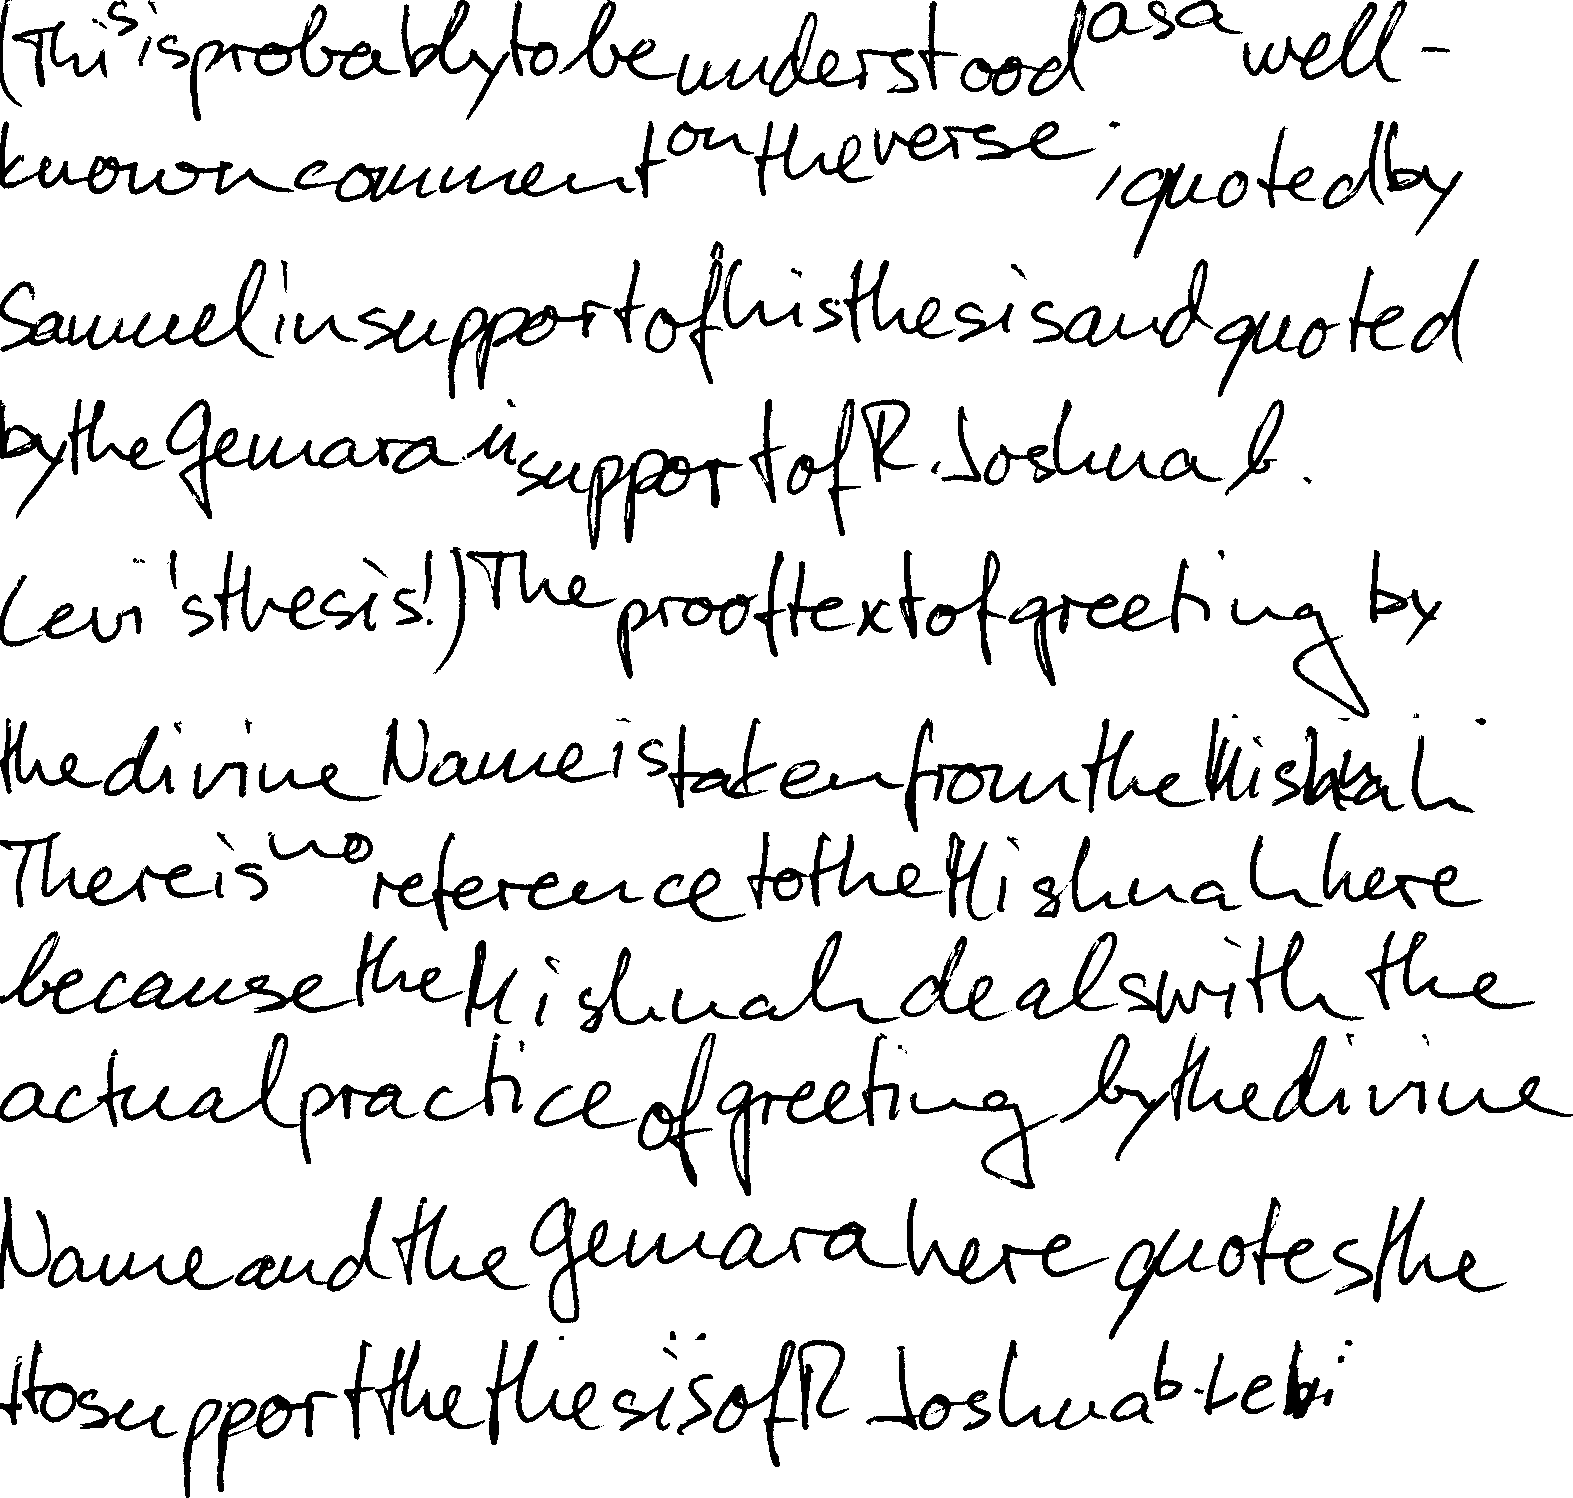 (This is probably to be understood as a well-
known comment on the verse, quoted by
Samuel in support of his thesis and quoted
by the Gemara in support of R. Joshua b.
Levi's thesis!) The proof text of greeting by
the divine Name is taken from the Mishnah.
There is no reference to the Mishnah here
because the Mishnah deals with the
actual practice of greeting by the divine
Name and the Gemara here quotes the
to support the thesis of R Joshua b. Lebi